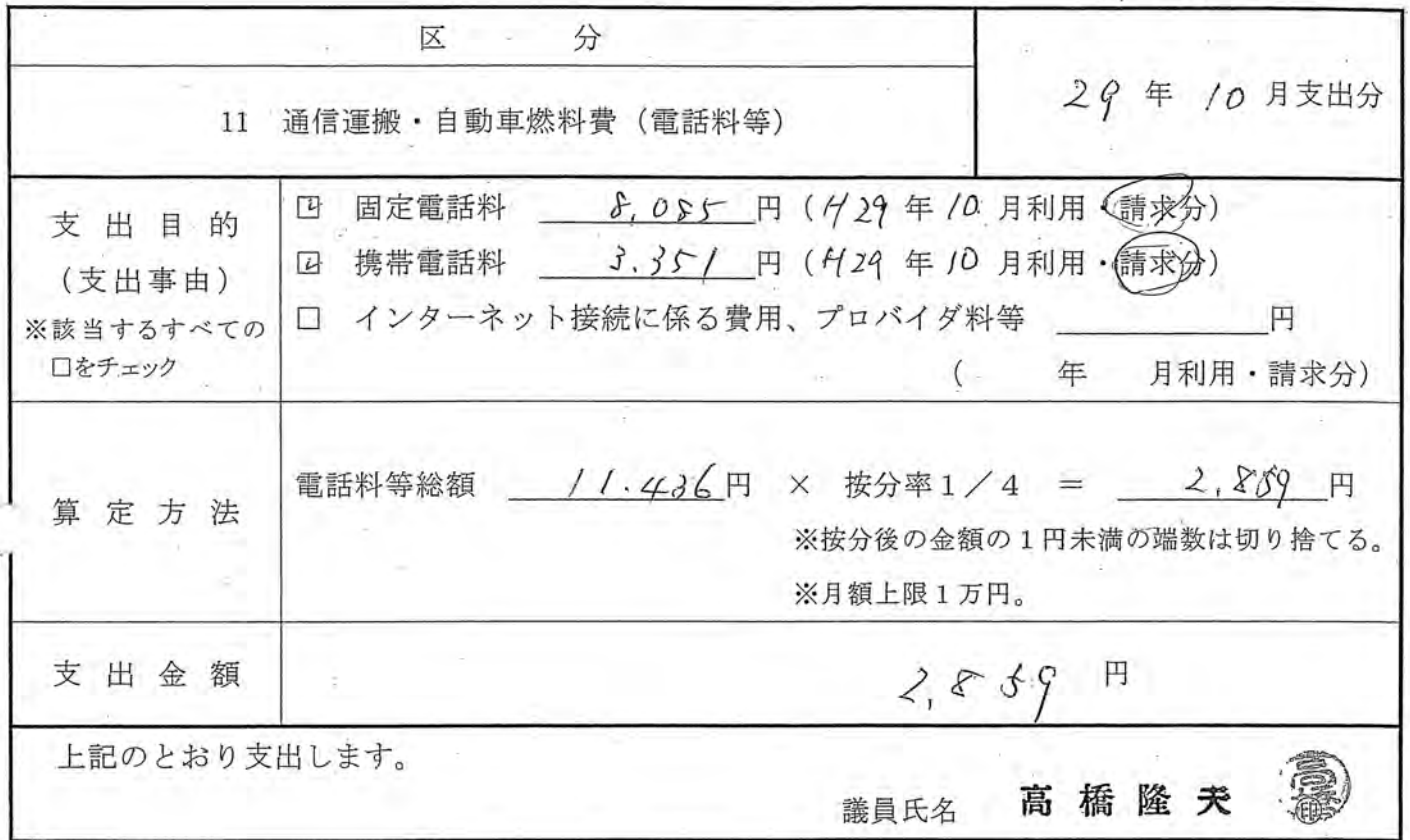 区 分
29 年 10 月支出分
11 通信運搬・自動車燃料費（電話料等）
支出目的
（支出事由）
※該当するすべての
□をチェック
☑ 固定電話料 8,085 円（H29 年 10 月利用・請求分）
☑ 携帯電話料 3,351 円（H29 年 10 月利用・請求分）
□ インターネット接続に係る費用、プロバイダ料等 円
（ 年 月利用・請求分）
算定方法
電話料等総額 11.436円 × 按分率1／4 ＝ 2,859 円
※按分後の金額の1円未満の端数は切り捨てる。
※月額上限1万円。
支出金額
2,859 円
上記のとおり支出します。
議員氏名 高橋隆夫